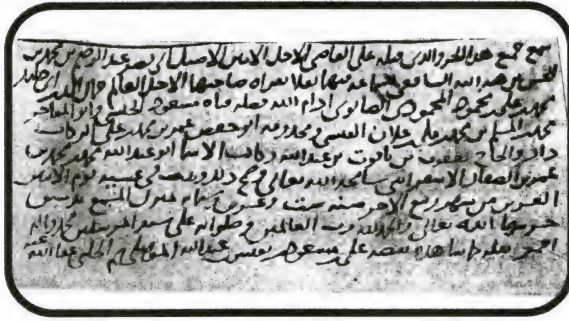 سمع جميع هذا الجزء والذي قبله على القاضي الاجل الامين الاصيل ابي نصر عبد الرحيم بن محمد بن
الحسن بن هبة الله الشافعي الجماعة بقراءة صاحبها الاجل العالم جمال الدين ابي حامد
محمد بن علي بن محمود المحمودي الصابوني ادام الله فضله فتاه مسعود الحبشي وابو المفاخر
محمد بن المسلم بن محمد بن علي بن علان القيسي ابو حفص عمر بن محمد بن علي البركات
والحاج يعقوب بن ياقوت بن عبد الله وكاتب الاسماء ابو عبد الله محمد بن محمد بن
عمر بن الصفار الاسفرايني سامحه الله تعالى وصح ذلك وثبت في عشية يوم الاثنين
العشرين من شهر ربيع الاخر سنة ست وعشرين وستمائة بمنزل المسمع بدمشق
حرسها الله تعالى والحمد لله رب العالمين وصلواته على سيد المرسلين محمد واله
على مسعود عبد الله الحلبي عفا الله عنه